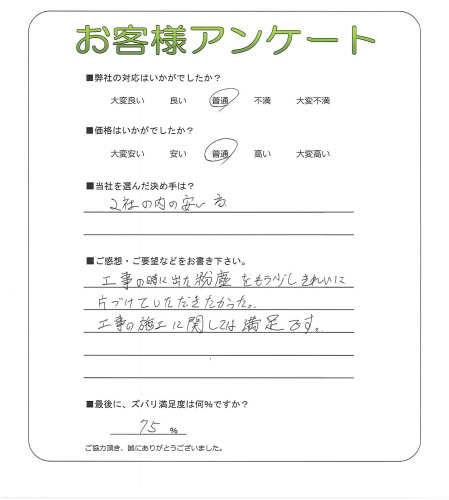 お客様アンケート
■弊社の対応はいかがでしたか？
大変良い 良い 普通 不満 大変不満
■価格はいかがでしたか？
大変安い 安い 普通 高い 大変高い
■当社を選んだ決め手は？
2社の内の安い方
■ご感想・ご要望などをお書き下さい。
工事の時に出た粉塵をもう少しきれいに
片づけていただきたかった。
工事の施工に関しては満足です。
■最後に、ズバリ満足度は何%ですか？
75 %
ご協力頂き、誠にありがとうございました。